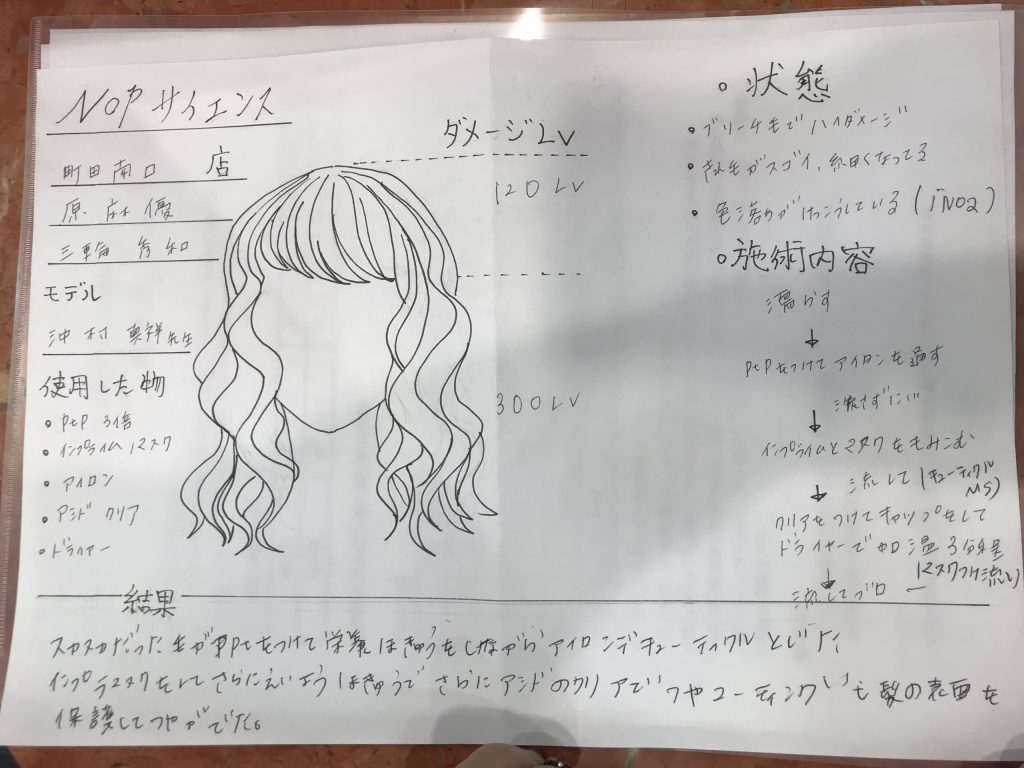 NOPサイエンス
町田南口 店
原 麻優
三輪 秀和
モデル
沖村 真祥先生
使用した物
• PtP 3倍
• インプライム マスク
• アイロン
• アシド クリア
• ドライヤー
ダメージLv
120 Lv
300 Lv
○ 状態
• ブリーチ毛でハイダメージ
• きれ毛がスゴイ、細くなってる
• 色落ちがけっこうしている(iNOA)
○施術内容
濡らす
↓
PtPをつけてアイロンを通す
↓ 流さずに
インプライムとマスクをもみこむ
↓ 流して (キューティクルMS)
クリアをつけてキャップをして
ドライヤーで加温3分程
↓ (マスクつけ流し)
流してブロー
結果
スカスカだった毛がPPtをつけて栄養ほきゅうをしながらアイロンデキューティクルとじた
インプラマスクをしてさらにえいようほきゅうでさらにアシドのクリアでツヤコーティングいも髪の表面を
保護してつやがでた。